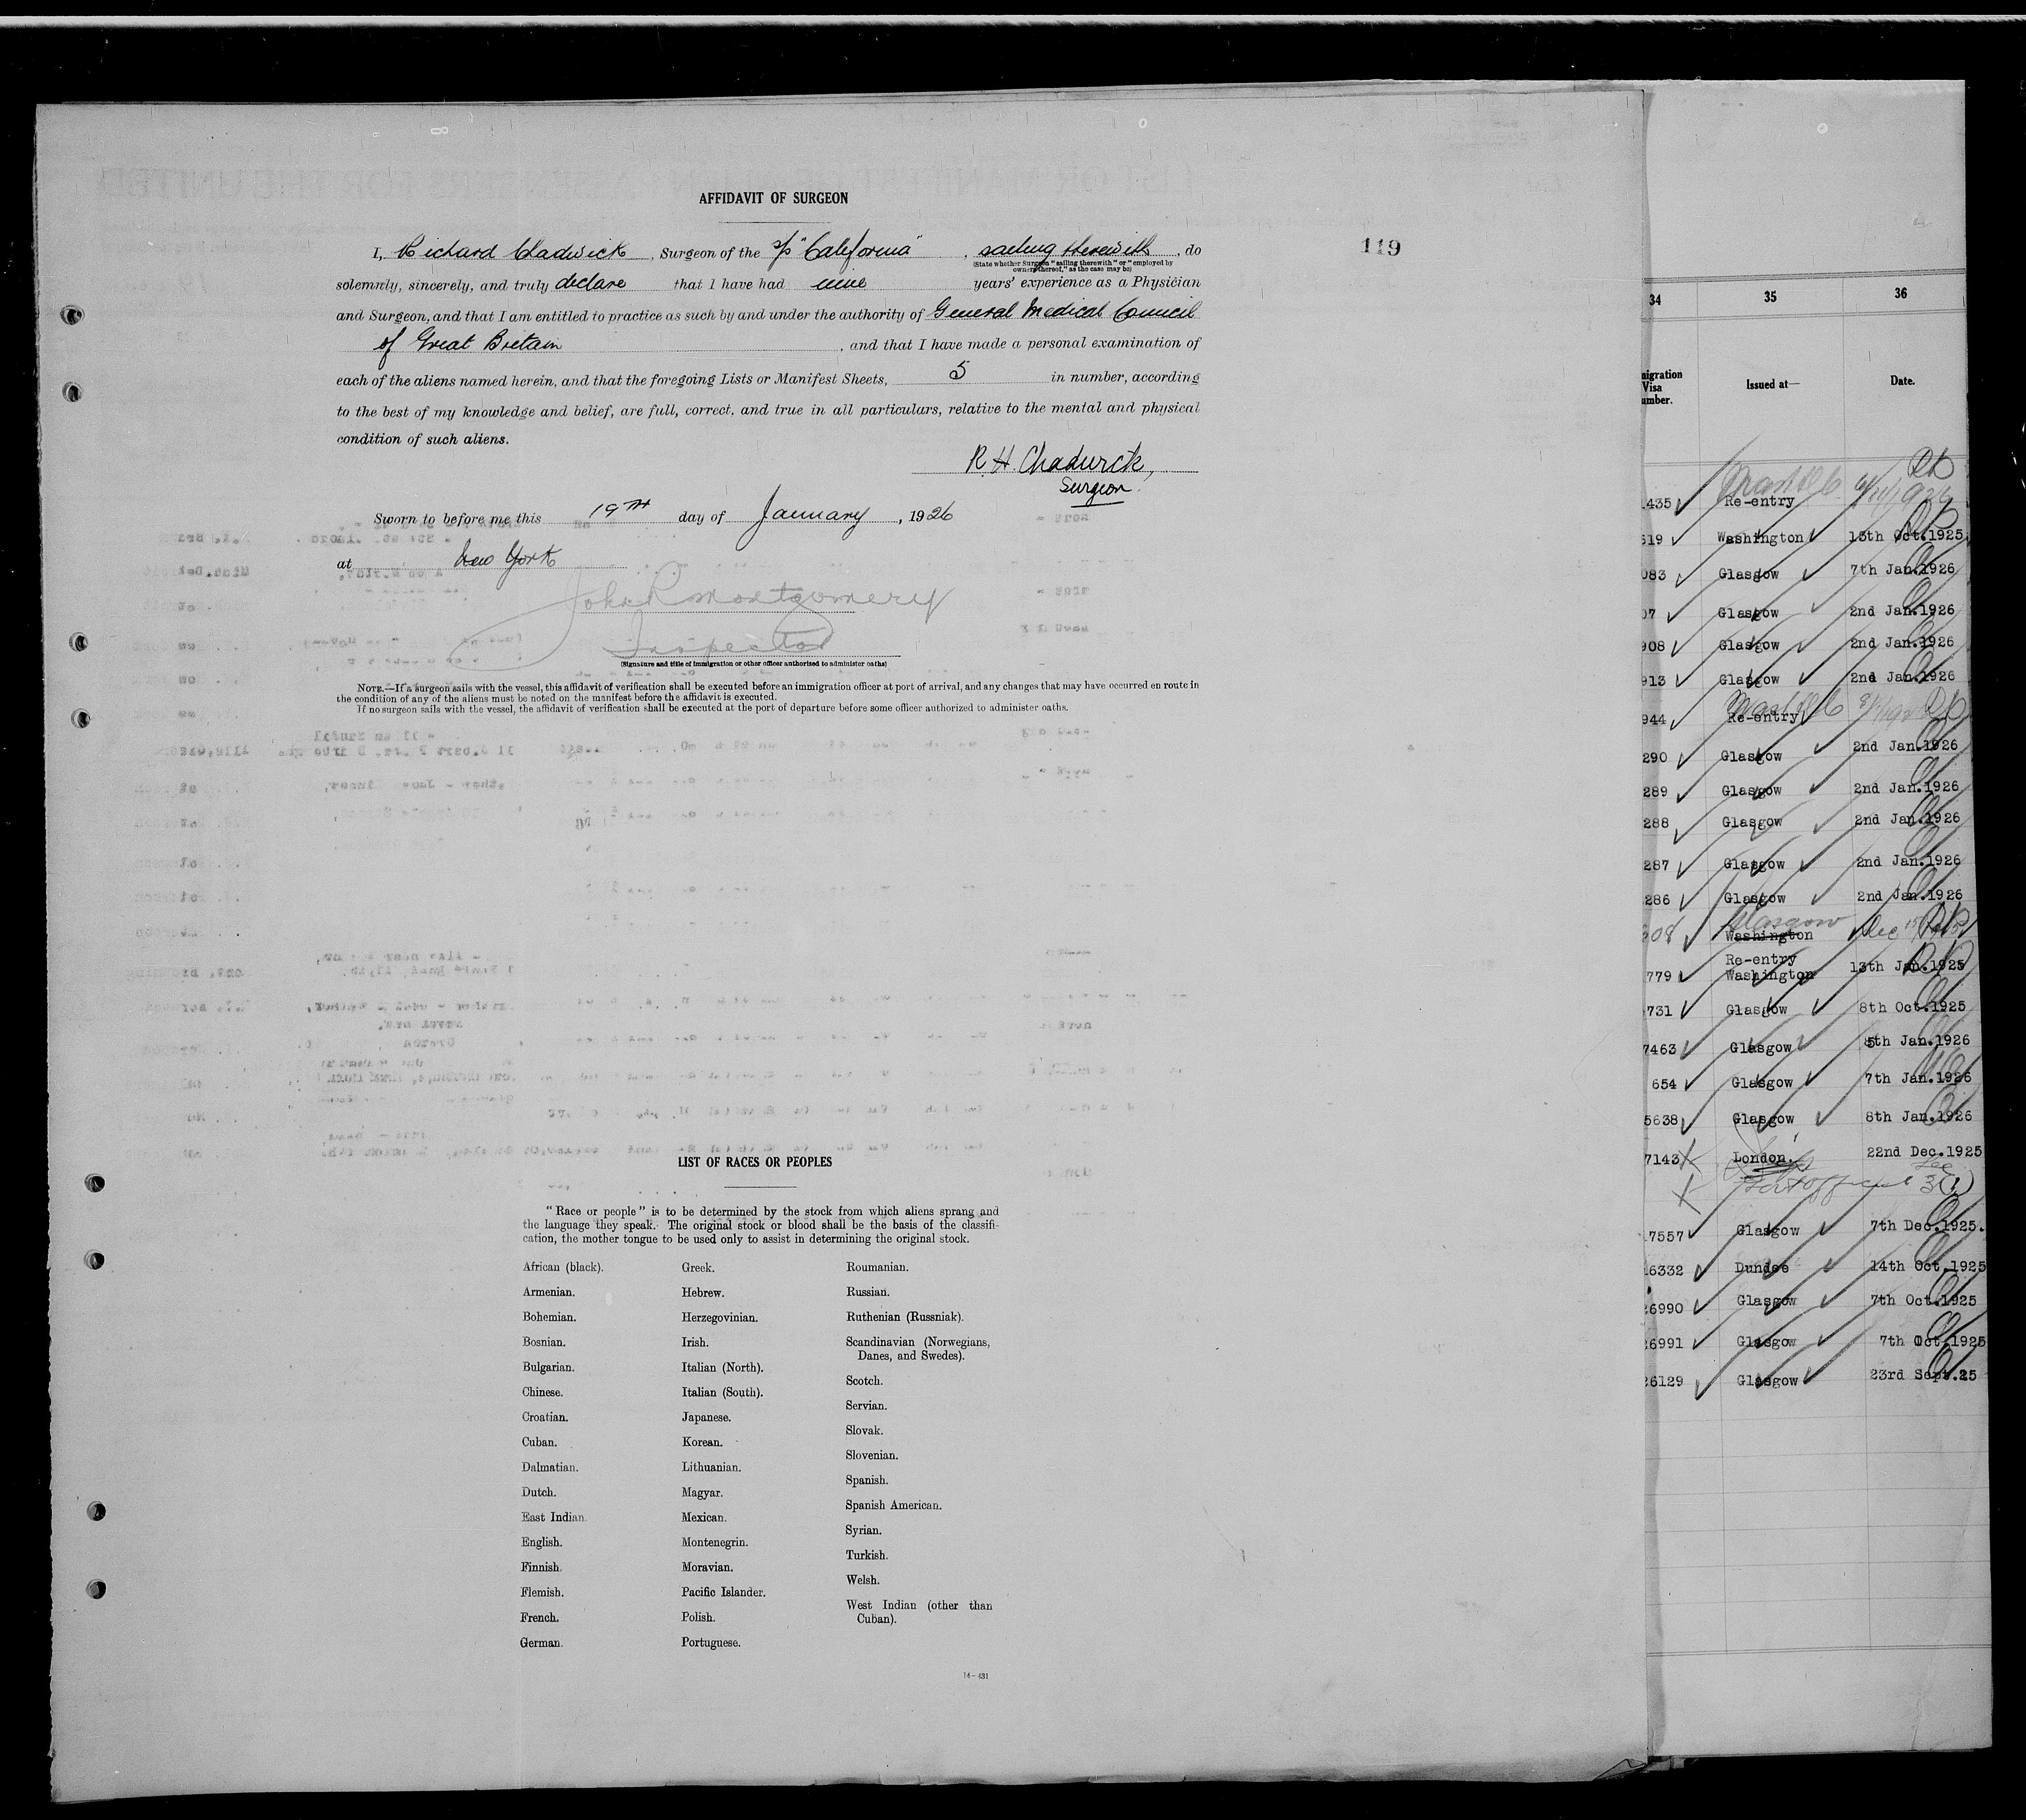 AFFIDAVIT OF SURGEON
119
I, Richard Chadwick, Surgeon of the s/s "California", sailing therewith, do
(State whether Surgeon "sailing therewith" or "employed by
owners thereof," as the case may be)
solemnly, sincerely, and truly declare that I have had nine years' experience as a Physician
and Surgeon, and that I am entitled to practice as such by and under the authority of General Medical Council
of Great Britain, and that I have made a personal examination of
each of the aliens named herein, and that the foregoing Lists or Manifest Sheets, 5 in number, according
to the best of my knowledge and belief, are full, correct, and true in all particulars, relative to the mental and physical
condition of such aliens.
R. H. Chadwick,
Surgeon.
Sworn to before me this 19TH day of January, 1926
at New York
John R Montgomery
Inspector
(Signature and title of immigration or other officer authorized to administer oaths)
NOTE.—If a surgeon sails with the vessel, this affidavit of verification shall be executed before an immigration officer at port of arrival, and any changes that may have occurred en route in
the condition of any of the aliens must be noted on the manifest before the affidavit is executed.
If no surgeon sails with the vessel, the affidavit of verification shall be executed at the port of departure before some officer authorized to administer oaths.
LIST OF RACES OR PEOPLES
"Race or people" is to be determined by the stock from which aliens sprang and
the language they speak. The original stock or blood shall be the basis of the classifi-
cation, the mother tongue to be used only to assist in determining the original stock.
African (black).
Armenian.
Bohemian.
Bosnian.
Bulgarian.
Chinese.
Croatian.
Cuban.
Dalmatian.
Dutch.
East Indian.
English.
Finnish.
Flemish.
French.
German.
Greek.
Hebrew.
Herzegovinian.
Irish.
Italian (North).
Italian (South).
Japanese.
Korean.
Lithuanian.
Magyar.
Mexican.
Montenegrin.
Moravian.
Pacific Islander.
Polish.
Portuguese.
Roumanian.
Russian.
Ruthenian (Russniak).
Scandinavian (Norwegians,
Danes, and Swedes).
Scotch.
Servian.
Slovak.
Slovenian.
Spanish.
Spanish American.
Syrian.
Turkish.
Welsh.
West Indian (other than
Cuban).
14—431
34 35 36
migration
Visa
umber.
Issued at—
Date.
435 Re-entry
619 Washington 13th Oct.1925
083 Glasgow 7th Jan.1926
07 Glasgow 2nd Jan.1926
908 Glasgow 2nd Jan.1926
913 Glasgow 2nd Jan.1926
944 Re-entry
290 Glasgow 2nd Jan.1926
289 Glasgow 2nd Jan.1926
288 Glasgow 2nd Jan.1926
287 Glasgow 2nd Jan.1926
286 Glasgow 2nd Jan.1926
Glasgow
208 Washington Dec 15
Re-entry
779 Washington 13th Jan.1925
731 Glasgow 8th Oct.1925
7463 Glasgow 5th Jan.1926
654 Glasgow 7th Jan.1926
5638 Glasgow 8th Jan.1926
7143 London. 22nd Dec.1925
7557 Glasgow 7th Dec.1925.
6332 Dundee 14th Oct.1925
26990 Glasgow 7th Oct.1925
26991 Glasgow 7th Oct.1925
26129 Glasgow 23rd Sept.25